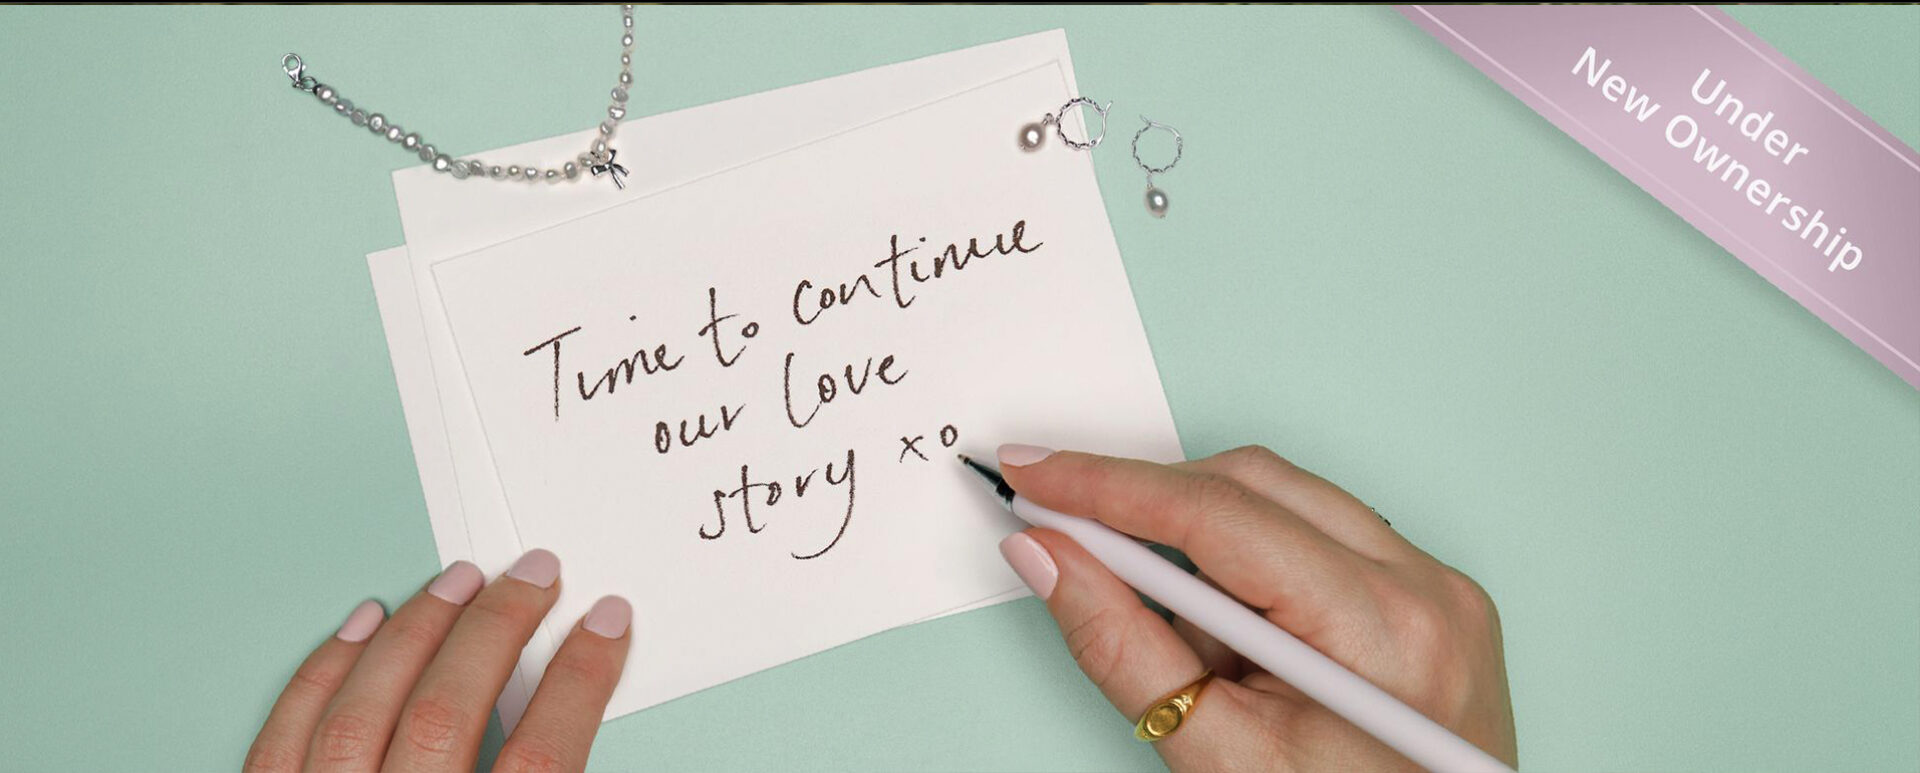 Time to continue
our love
story xo
Under
New Ownership